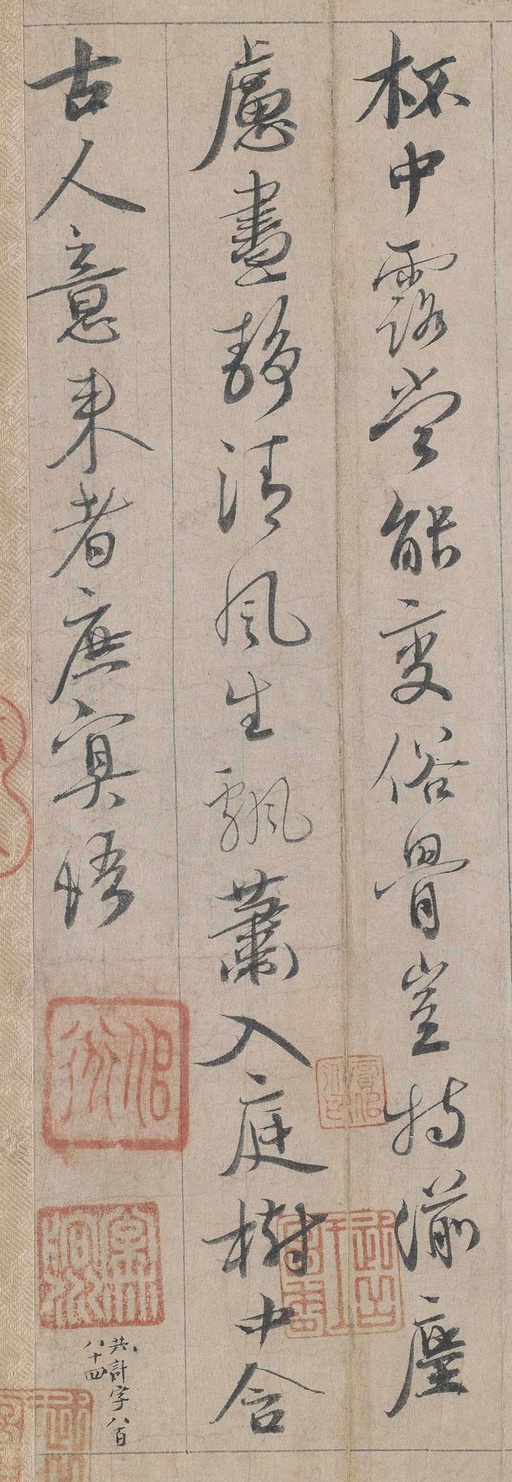 杯中露當能變俗骨豈特湔塵
慮晝靜清風生飄蕭入庭樹中含
古人意来者庶冥悟
共計字八百
八十四